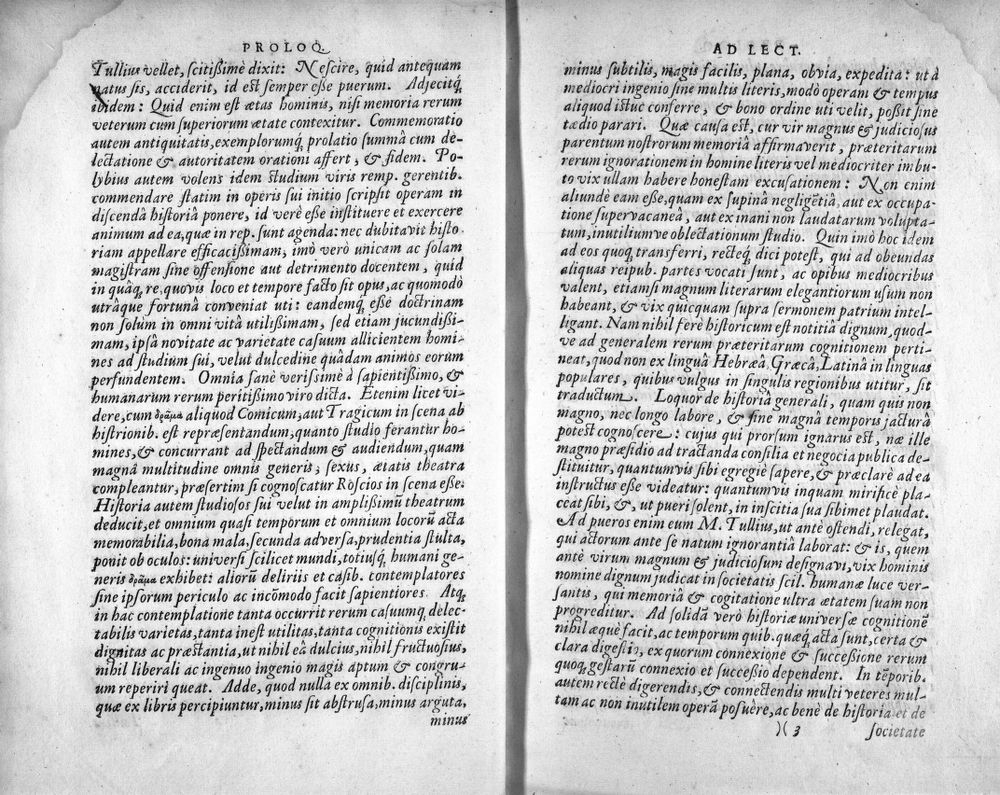 PROLOQ.
Tullius vellet, scitißimè dixit: Nescire, quid antequam
natus sis, acciderit, id est semper eße puerum. Adjecitq́,
ibidem: Quid enim est ætas hominis, nisi memoria rerum
veterum cum superiorum ætate contexitur. Commemoratio
autem antiquitatis, exemplorumq́, prolatio summâ cum de-
lectatione & autoritatem orationi affert, & fidem. Po-
lybius autem volens idem studium viris remp. gerentib.
commendare statim in operis sui initio scripsit operam in
discendâ historiâ ponere, id verè eße instituere et exercere
animum ad ea, quæ in rep. sunt agenda: nec dubitavit histo-
riam appellare efficacißimam, imò verò unicam ac solam
magistram sine offensione aut detrimento docentem, quid
in quâq, re, quovis loco et tempore facto sit opus, ac quomodò
utrâque fortunâ conveniat uti: eandemq́, eßè doctrinam
non solùm in omni vitâ utilißimam, sed etiam jucundißi-
mam, ipsâ novitate ac varietate casuum allicientem homi-
nes ad studium sui, velut dulcedine quâdam animos eorum
perfundentem. Omnia sanè verissimè à sapientißimo, &
humanarum rerum peritißimo viro dicta. Etenim licet vi-
dere, cum δρᾶμα aliquod Comicum, aut Tragicum in scena ab
histrionib. est repræsentandum, quanto studio ferantur ho-
mines, & concurrant ad spectandum & audiendum, quam
magnâ multitudine omnis generis, sexus, ætatis theatra
compleantur, præsertim si cognoscatur Roscios in scena eße.
Historia autem studiosos sui velut in amplißimū theatrum
deducit, et omnium quasi temporum et omnium locorū acta
memorabilia, bona mala, secunda adversa, prudentia stulta,
ponit ob oculos: universi scilicet mundi, totiusq́, humani ge-
neris δρᾶμα exhibet: aliorū deliriis et casib. contemplatores
sine ipsorum periculo ac incōmodo facit sapientiores. Atq́,
in hac contemplatione tanta occurrit rerum casuumq́, delec-
tabilis varietas, tanta inest utilitas, tanta cognitionis existit
dignitas ac præstantia, ut nihil eâ dulcius, nihil fructuosius,
nihil liberali ac ingenuo ingenio magis aptum & congru-
um reperiri queat. Adde, quod nulla ex omnib. disciplinis,
quæ ex libris percipiuntur, minus sit abstrusa, minus arguta,
minus
AD LECT.
minus subtilis, magis facilis, plana, obvia, expedita: ut à
mediocri ingenio sine multis literis, modò operam & tempus
aliquod istuc conferre, & bono ordine uti velit, poßit sine
tædio parari. Quæ causa est, cur vir magnus & judiciosus
parentum nostrorum memoriâ affirmaverit, præteritarum
rerum ignorationem in homine literis vel mediocriter imbu-
to vix ullam habere honestam excusationem: Non enim
aliunde eam eße, quam ex supinâ negligētiâ, aut ex occupa-
tione supervacaneâ, aut ex inani non laudatarum volupta-
tum, inutiliumve oblectationum studio. Quin imò hoc idem
ad eos quoq́, transferri, recteq́, dici potest, qui ad obeundas
aliquas reipub. partes vocati sunt, ac opibus mediocribus
valent, etiamsi magnum literarum elegantiorum usum non
habeant, & vix quicquam supra sermonem patrium intel-
ligant. Nam nihil ferè historicum est notitiâ dignum, quod-
ve ad generalem rerum præteritarum cognitionem perti-
neat, quod non ex linguâ Hebræâ, Græcâ, Latinâ in linguas
populares, quibus vulgus in singulis regionibus utitur, sit
traductum. Loquor de historiâ generali, quam quis non
magno, nec longo labore, & sine magnâ temporis jacturâ
potest cognoscere: cujus qui prorsum ignarus est, næ ille
magno præsidio ad tractanda consilia et negocia publica de-
stituitur, quantumvis sibi egregiè sapere, & præclarè ad ea
instructus eße videatur: quantumvis inquam mirificè pla-
ceat sibi, &, ut pueri solent, in inscitia sua sibimet plaudat.
Ad pueros enim eum M. Tullius, ut antè ostendi, relegat,
qui actorum ante se natum ignorantiâ laborat: & is, quem
antè virum magnum & judiciosum designavi, vix hominis
nomine dignum judicat in societatis scil. humanæ luce ver-
santis, qui memoriâ & cogitatione ultra ætatem suam non
progreditur. Ad solidā verò historiæ universæ cognitionē
nihil æquè facit, ac temporum quib. quæq́, acta sunt, certa &
clara digestio, ex quorum connexione & succeßione rerum
quoq́, gestarū connexio et succeßio dependent. In tēporib.
autem rectè digerendis, & connectendis multi veteres mul-
tam ac non inutilem operā posuêre, ac benè de historia et de
)( 3 societate